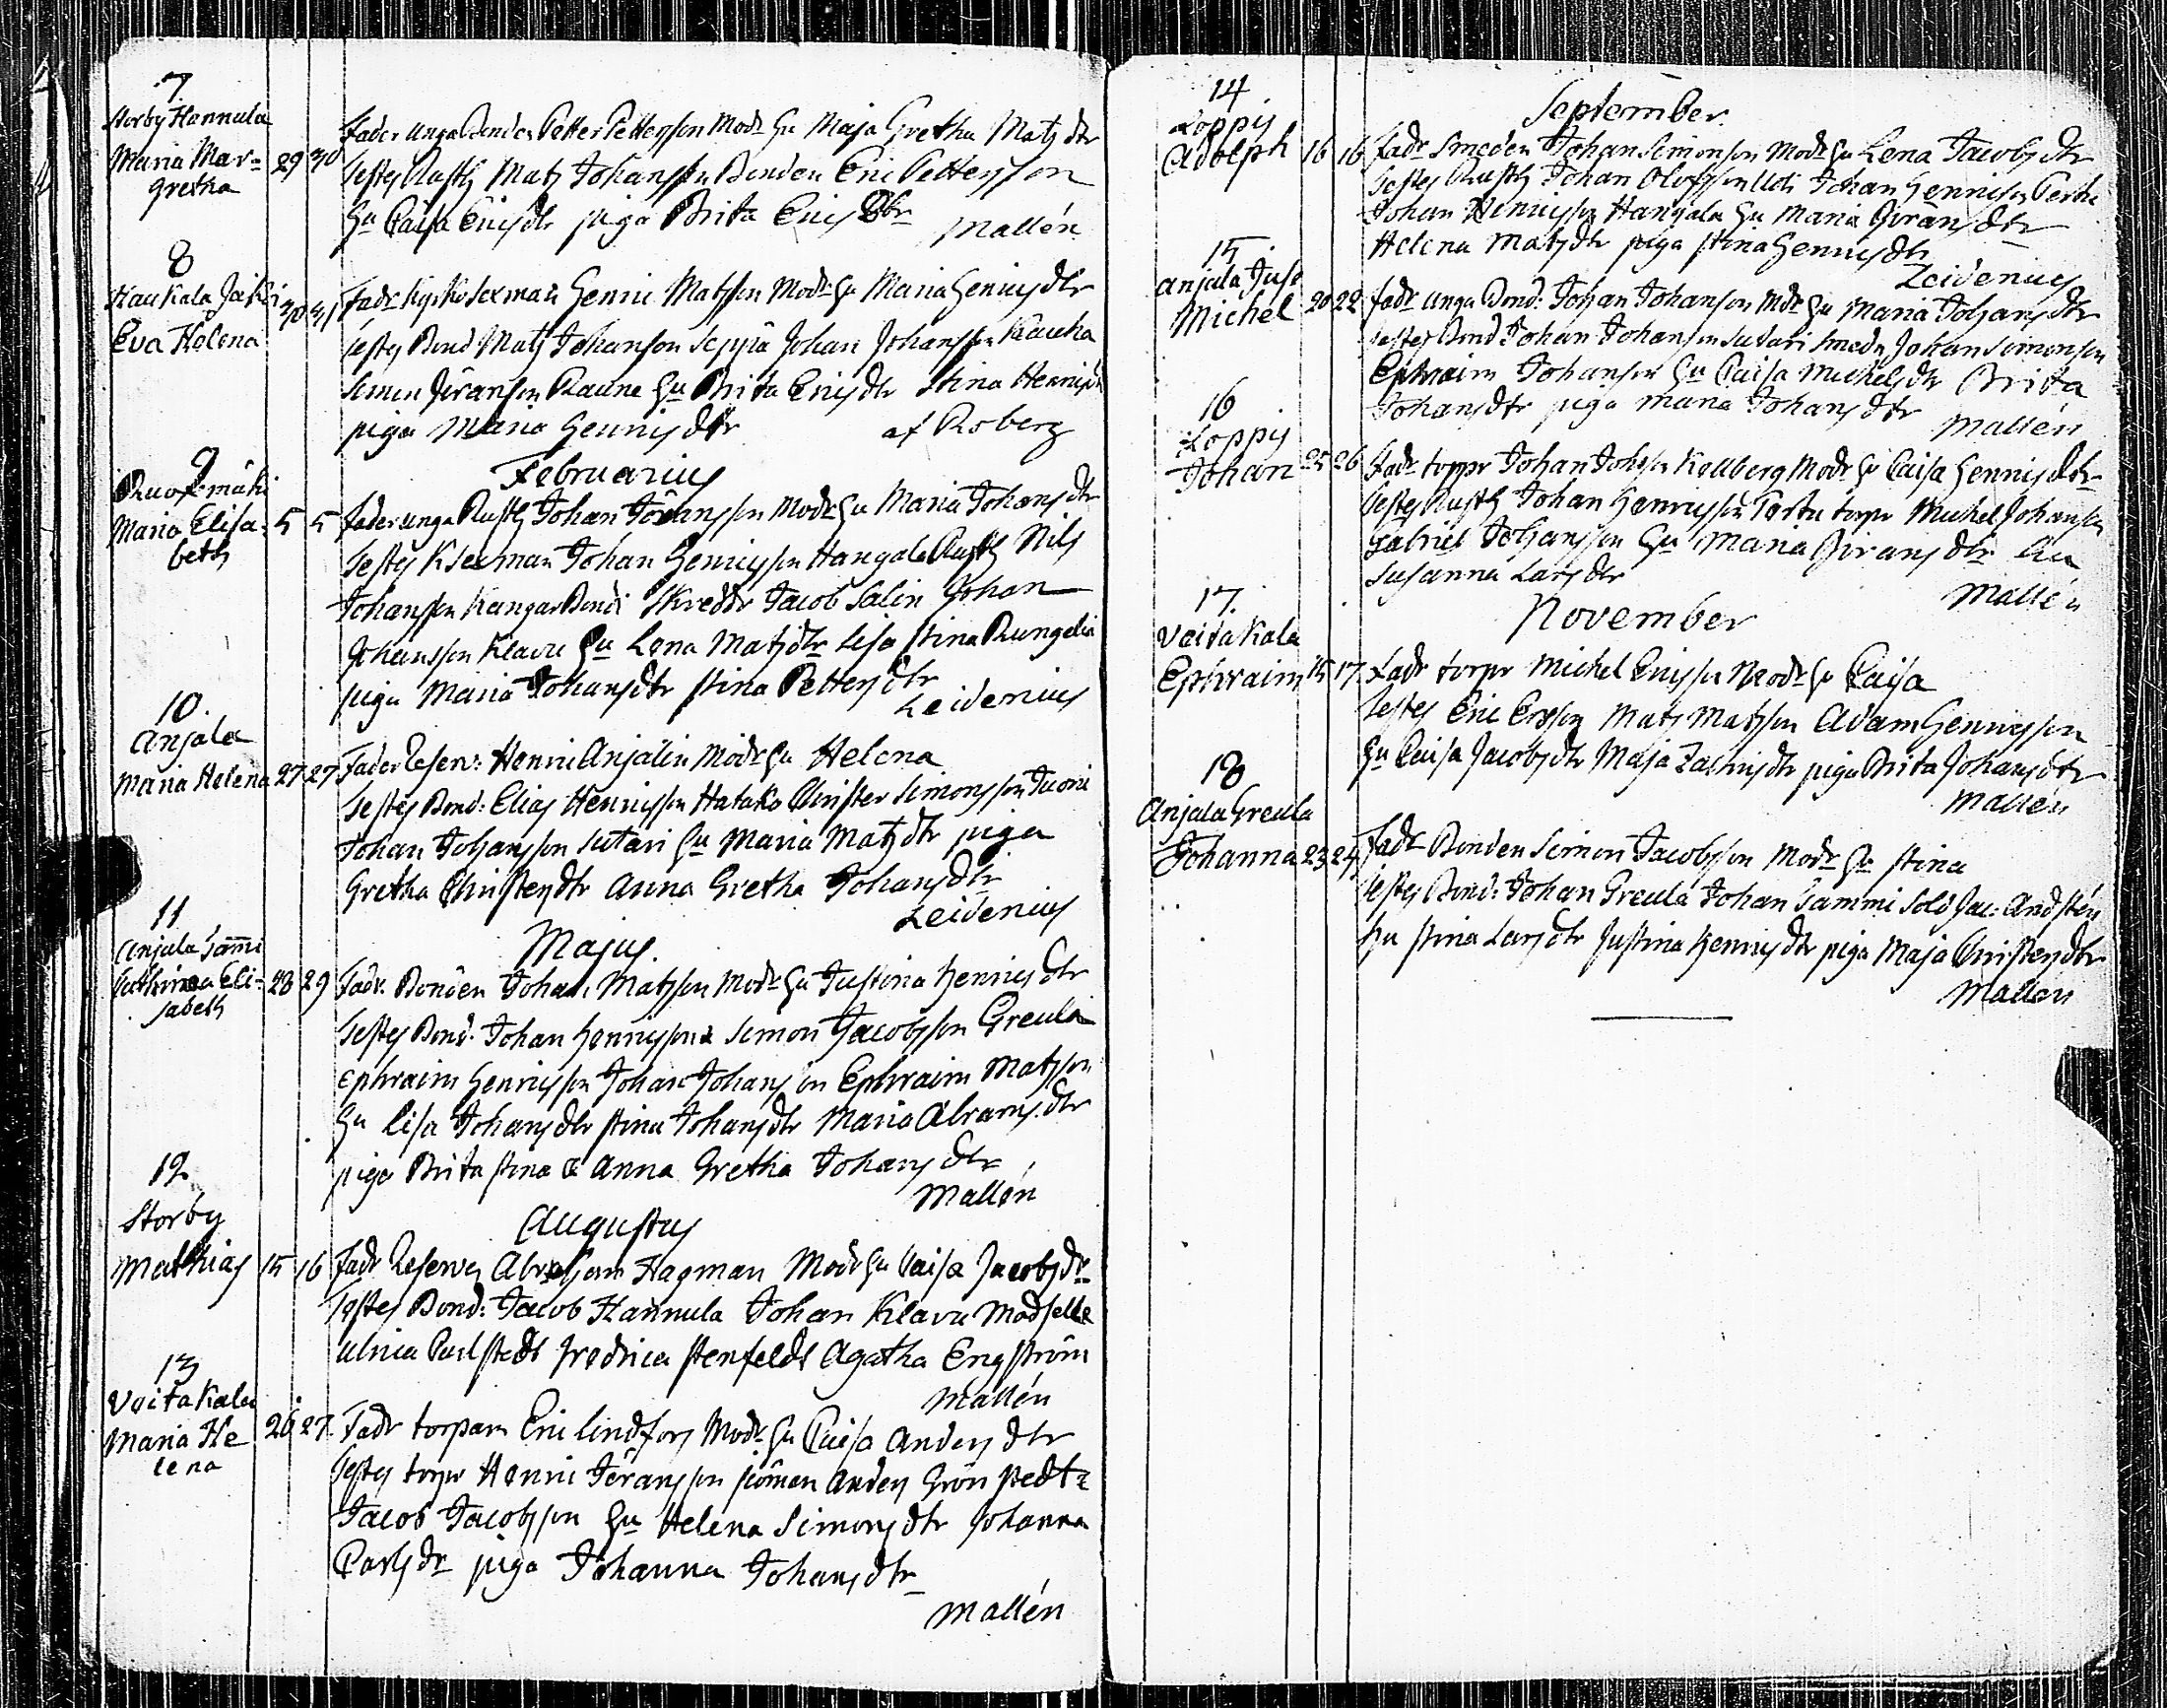 7
Storby Hannula
Maria Mar=
gretha
29 30
Fader unga Bonden Petter Pettersson Modr Hu Maja Gretha Matsdtr
Testes Rusth Mats Johansson Bonden Eric Pettersson
Hu Caisa Ericsdtr piga Brita Erics Dtr
Mallén
8
Haukala Jaki
Eva Helena
30 31
Fadr Kyrko Sexman Henric Matsson Modr Hu Maria Henricsdtr
Testes Bond Mats Johanson Seppä Johan Johansson Kaucha
Simon Jöranson Raune Hu Brita Ericsdtr Stina Henricsdr
piga Maria Henricsdtr af Roberg
Februarius
9
Ruokmäki
Maria Elisa=
beth
5 5
Fader unga Rusth Johan Jöransson Modr Hu Maria Johansdtr
Testes K Sexman Johan Henricsson Hangala Rusth Nils
Johansson Kangas Bond Skreddr Jacob Salin Johan
Johansson Klavu Hu Lena Matsdtr Lisa Stina Rungelia
piga Maria Johansdtr Stina Pettersdtr
Leidenius
10.
Anjala
Maria Helena
27 27
Fader Reserv: Henric Anjalin Modr Hu Helena
Testes Bond: Elias Henricsson Hatakа Christer Simonsson Tuomi
Johan Johansson Sutari Hu Maria Matsdtr piga
Gretha Christersdtr Anna Gretha Johansdtr
Leidenius
Majus.
11
Anjala Sam̄i
Cathrina Eli=
sabeth
28 29
Fadr. Bonden Johan Matsson Modr Hu Justina Henricsdtr
Testes Bond: Johan Henricsson & Simon Jacobsson Greula
Ephraim Henricsson Johan Johansson Ephraim Matsson
Hu Lisa Johansdtr Stina Johansdtr Maria Abramsdtr
piga Brita Stina & Anna Gretha Johansdtr
Mallén
Augustus
12
Storby
Mathias
15 16
Fadr Reserven Abraham Hagman Modr Hu Caisa Jacobsdr
Testes Bond: Jacob Hannula Johan Klavu Madselle
Ulrica Carlstedt Fredrica Stenfeldt Agatha Engström
Mallén
13
Voitakala
Maria He
lena
26 27
Fadr torparn Eric Lindfors Modr Hu Caisa Andersdtr
Testes torpr Henric Jöransson Anders Grönstedt
Jacob Jacobsson Hu Helena Simonsdtr Johanna
Carlsdr piga Johanna Johansdtr
Mallén
September
14
Loppis
Adolph
16 16
Fadr Smeden Johan Simonson Modr Hu Lena Jacobsdtr
Testes Rusth Johan Olofsson Uoti Johan Henricson
Johan Henricsson Hangala Hu Maria Jöransdtr
Helena Matsdtr piga Stina Henricsdtr
Leidenius
15
Anjala Juso
Michel
20 22
Fadr unga Bond: Johan Johanson Mdr Hu Maria Johansdtr
Testes Bond Johan Johanson Sutari Smedn Johan Simonson
Ephraim Johanson Hu Caisa Michelsdtr Brita
Johansdtr piga Maria Johansdtr
Mallén
16
Loppis
Johan
25 26
Fadr torppr Johan Johsson Kollberg Modr Hu Caisa Henricsdtr
Testes Rusth Johan Henricsson torpr Michel Johansson
Gabriel Johansson Hu Maria Jöransdtr Hu
Susanna Larsdtr
Mallén
November
17.
Voitakala
Ephraim
15 17
Fadr torpr Michel Ericsson Modr Hu Caisa
Testes Eric Ersson Mats Matsson Adam Henricsson
Hu Caisa Jacobsdtr Maja Zachrisdtr piga Brita Johansdtr
Mallén
18
Anjala Greula
Johanna
23 24
Fadr Bonden Simon Jacobsson Modr Hu Stina
Testes Bond: Johan Greula Johan Sammi Sold Jac: Andstén
Hu Stina Larsdtr Justina Henricsdtr piga Maja Christersdtr
Mallén